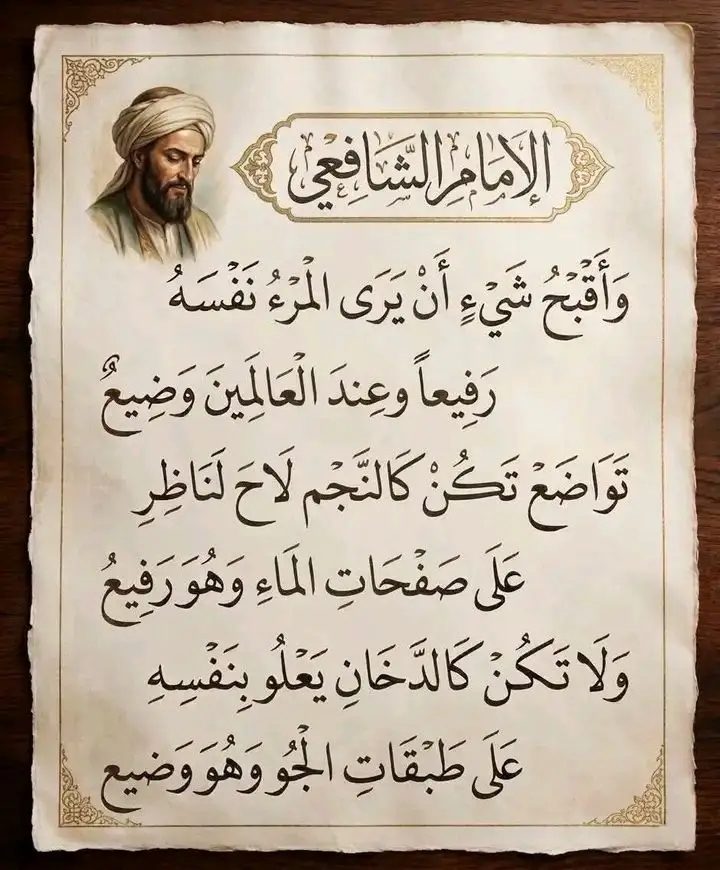 الإمام الشافعي
وَأَقْبَحُ شَيْءٍ أَنْ يَرَى الْمَرْءُ نَفْسَهُ
رَفِيعاً وعِندَ الْعَالَمِينَ وَضِيعٌ
تَوَاضَعْ تَكُنْ كَالنَّجْم لَاحَ لَنَاظِرِ
عَلَى صَفْحَاتِ الْمَاءِ وَهُوَ رَفِيعُ
وَلَا تَكُنْ كَالدَّخَانِ يَعْلُو بِنَفْسِهِ
عَلَى طَبْقَاتِ الْجُو وَهُوَ وَضيع